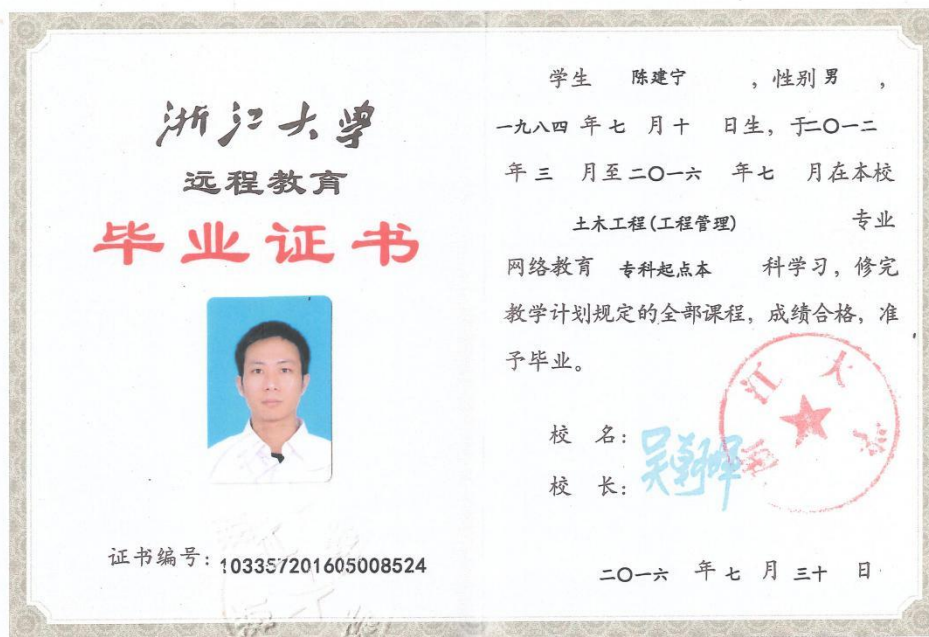 浙江大学
远程教育
毕业证书
证书编号：103357201605008524
学生 陈建宁 ，性别 男 ，
一九八四 年 七 月 十 日生，于二〇一二
年 三 月至 二〇一六 年 七 月在本校
土木工程(工程管理) 专业
网络教育 专科起点本 科学习，修完
教学计划规定的全部课程，成绩合格，准
予毕业。
校 名：
浙江大学
校 长：
吴朝晖
二〇一六 年 七 月 三十 日